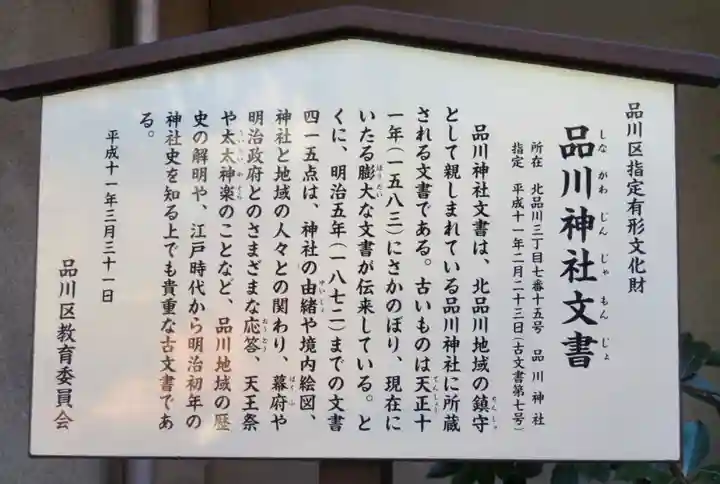 品川区指定有形文化財
品川神社文書
しながわじんじゃもんじょ
所在 北品川三丁目七番十五号 品川神社
指定 平成十一年二月二十三日(古文書第七号)
品川神社文書は、北品川地域の鎮守
として親しまれている品川神社に所蔵
される文書である。古いものは天正十
一年(一五八三)にさかのぼり、現在に
いたる膨大な文書が伝来している。と
くに、明治五年(一八七二)までの文書
四一五点は、神社の由緒や境内絵図、
神社と地域の人々との関わり、幕府や
明治政府とのさまざまな応答、天王祭
や太太神楽のことなど、品川地域の歴
史の解明や、江戸時代から明治初年の
神社史を知る上でも貴重な古文書であ
る。
平成十一年三月三十一日
品川区教育委員会